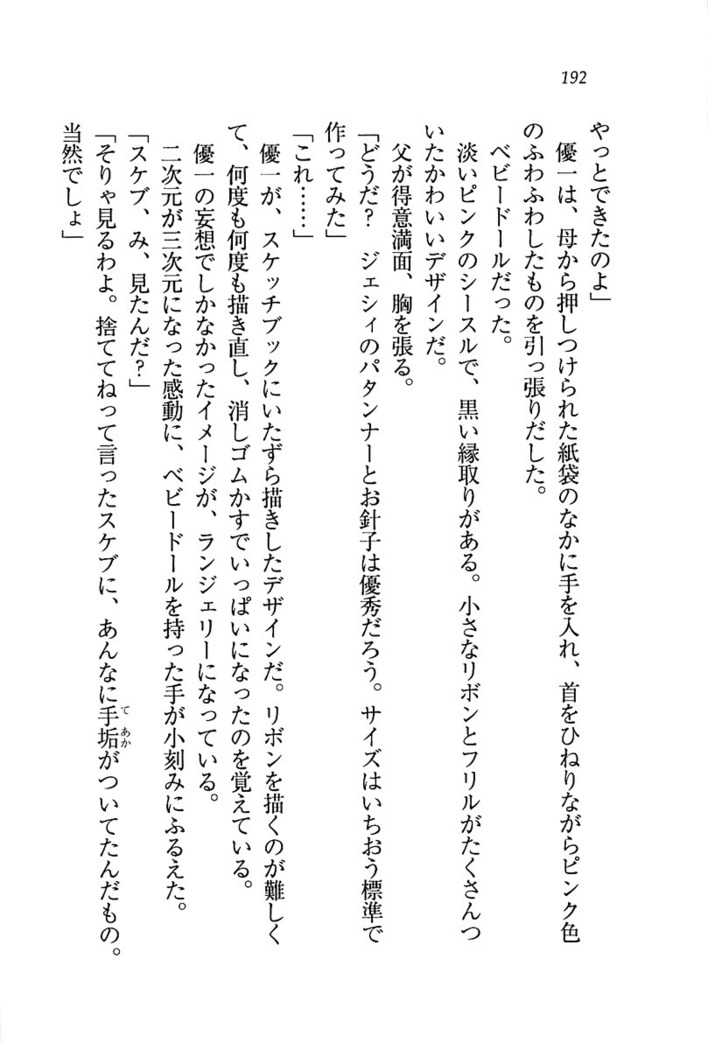 192
やっとできたのよ」
　優一は、母から押しつけられた紙袋のなかに手を入れ、首をひねりながらピンク色
のふわふわしたものを引っ張りだした。
　ベビードールだった。
　淡いピンクのシースルで、黒い縁取りがある。小さなリボンとフリルがたくさんつ
いたかわいいデザインだ。
　父が得意満面、胸を張る。
「どうだ？　ジェシィのパタンナーとお針子は優秀だろう。サイズはいちおう標準で
作ってみた」
「これ……」
　優一が、スケッチブックにいたずら描きしたデザインだ。リボンを描くのが難しく
て、何度も何度も描き直し、消しゴムかすでいっぱいになったのを覚えている。
　優一の妄想でしかなかったイメージが、ランジェリーになっている。
　二次元が三次元になった感動に、ベビードールを持った手が小刻みにふるえた。
「スケブ、み、見たんだ？」
「そりゃ見るわよ。捨ててねって言ったスケブに、あんなに手垢がついてたんだもの。
当然でしょ」